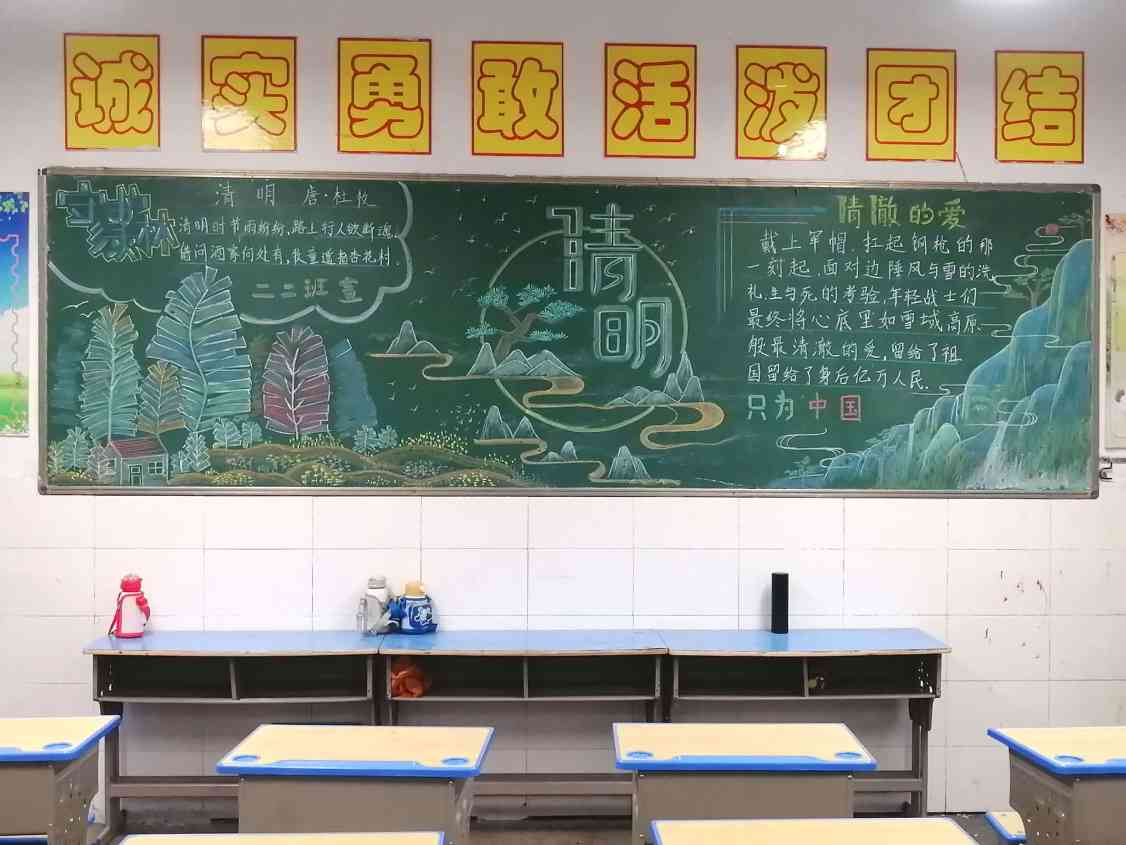 诚实勇敢活泼团结
清明 唐·杜牧
清明时节雨纷纷,路上行人欲断魂。
借问酒家何处有,牧童遥指杏花村。
二二班宣
清明
清澈的爱
戴上军帽,扛起钢枪的那
一刻起,面对边陲风与雪的洗
礼,生与死的考验,年轻战士们
最终将心底里如雪域高原
般最清澈的爱,留给了祖
国留给了身后亿万人民.
只为中国